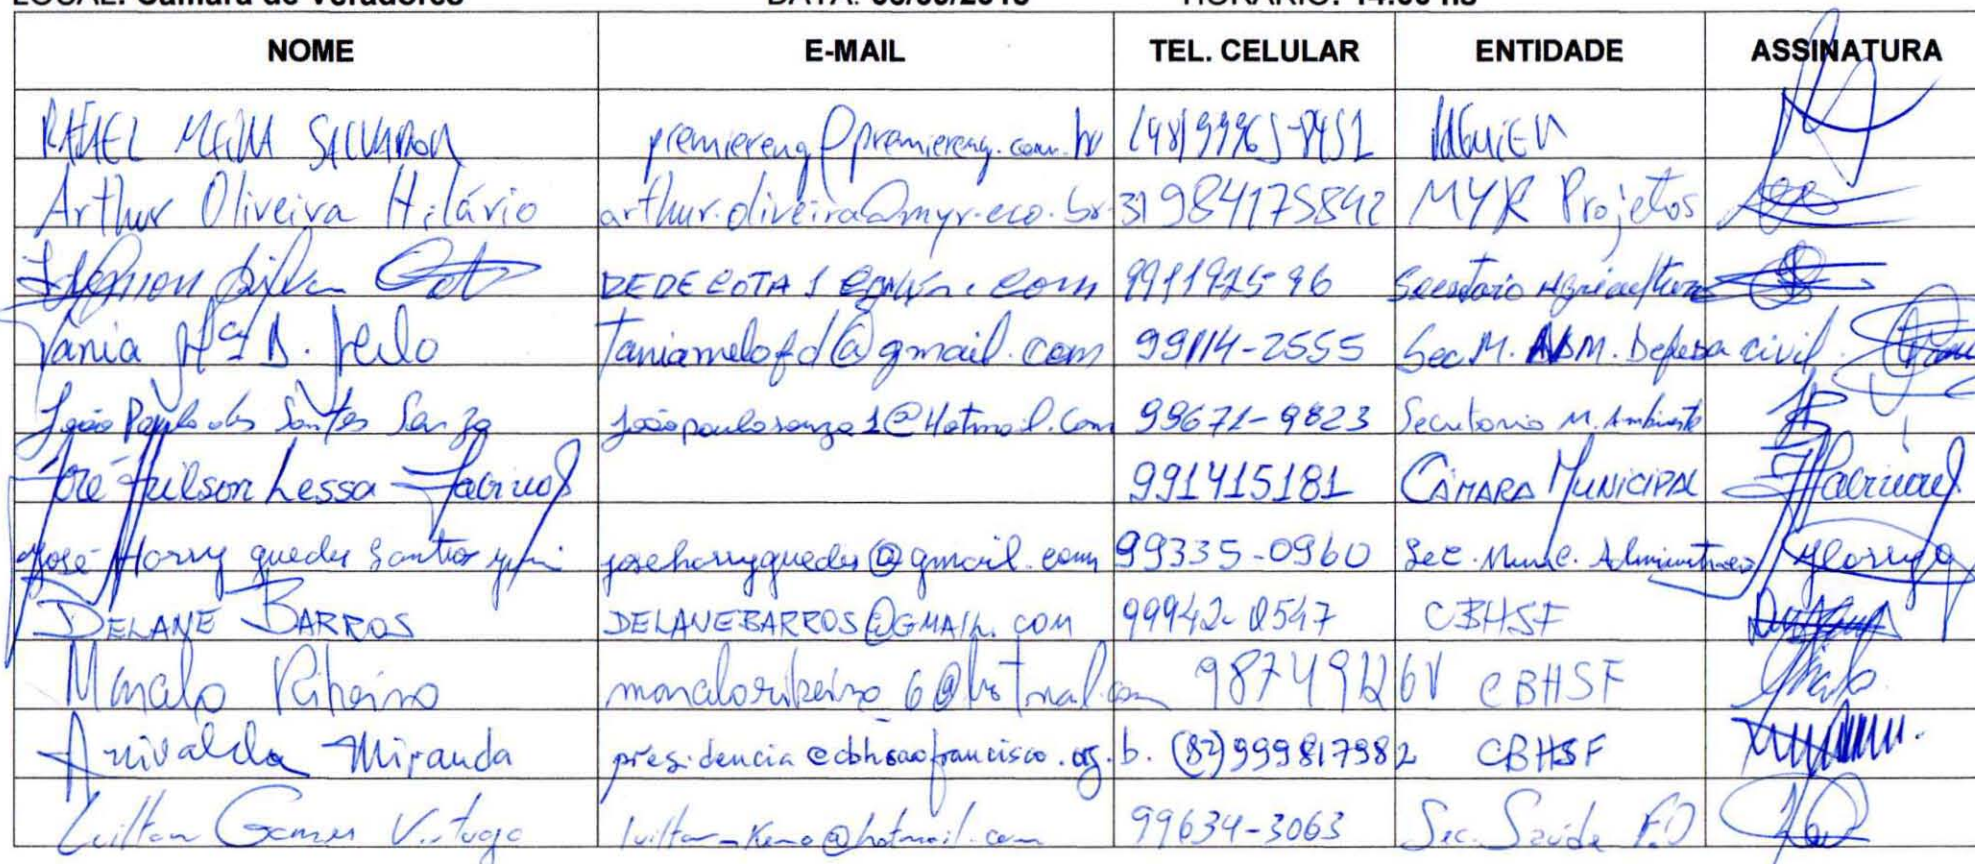 LOCAL: Câmara de Veradores DATA: HORÁRIO: 14:00 hs
NOME E-MAIL TEL. CELULAR ENTIDADE ASSINATURA
RAFAEL SALVADOR premiereng@premiereng.com.br
Arthur Oliveira Hilário arthur.oliveira@myr.eco.br 31 984175842 MYR Projetos
Silva DEDECOTA1 9911925-96 Secretario Agricultura
Tania Mª B. Melo taniamelofd@gmail.com 99114-2555 Sec M. ADM. Defesa civil
João Paulo dos Santos Souza joãopaulosouza1@Hotmail.Com 99671-9823 Secretario M. Ambiente
José Lessa 991415181 CÂMARA MUNICIPAL
José Harry guedes Santos joseharryguedes@gmail.com 99335-0960 Sec. Munic. Administração
DELANE BARROS DELANEBARROS@GMAIL.COM 99942-0547 CBHSF
Marcelo Ribeiro marceloribeiro6@hotmail.com CBHSF
Anivaldo Miranda presidencia@cbhsaofrancisco.org.b. (82)999817982 CBHSF
Gomes 99634-3063 Sec. Saúde